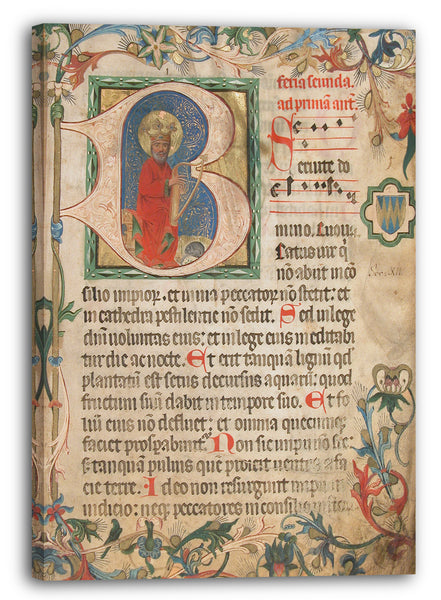 feria secunda.
ad primā ant̄.
Seruite do
B
mino.
latus uir q̇
nō abiit in cō
silio impioꝝ. et in uia peccatoꝝ nō stetit: et
in cathedra pestilentie nō sedit. Sed in lege
dn̄i uoluntas eius: et in lege eius meditabi
tur die ac nocte. Et erit tanquā lignū qd̄
plantatū est secus decursus aquarū: quod
fructum suū dabit in tempore suo. Et fo
liū eius nō defluet: et omnia quecunq;
faciet prospabunt̄. Non sic impii nō sic:
s; tanquā puluis quē proicit uentus a fa
cie terre. Ideo non resurgunt impii in
iudicio: neq; peccatores in consilio